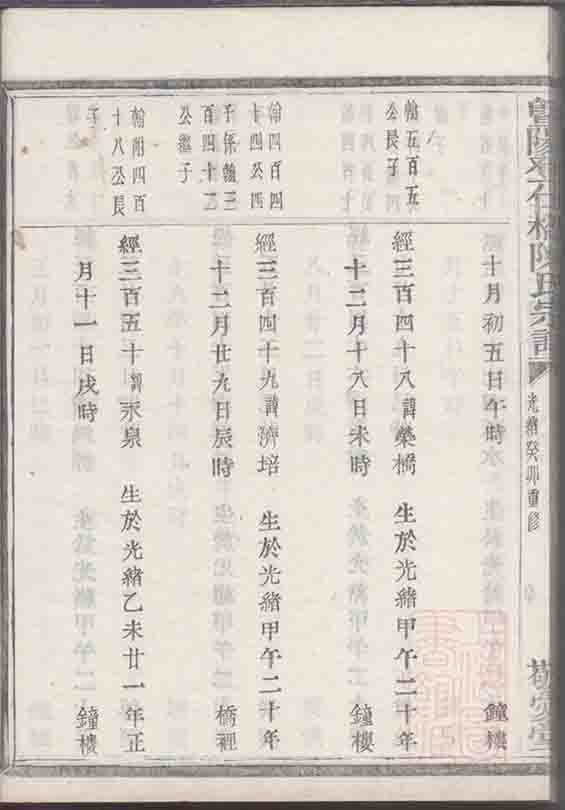 陽
石橋陳氏宗譜
光緒癸卯重修
十月初五日午時
鐘樓
翰五百五
公長子
經三百四十八諱榮橋 生於光緒甲午二十年
十二月十八日未時
鐘樓
翰四百四
十四公四
子係翰三
百四十二
公繼子
經三百四十九諱濟培 生於光緒甲午二十年
十二月廿九日辰時
橋裡
翰四百
十八公長
子
經三百五十諱永泉 生於光緒乙未廿一年正
月十一日戌時
鐘樓